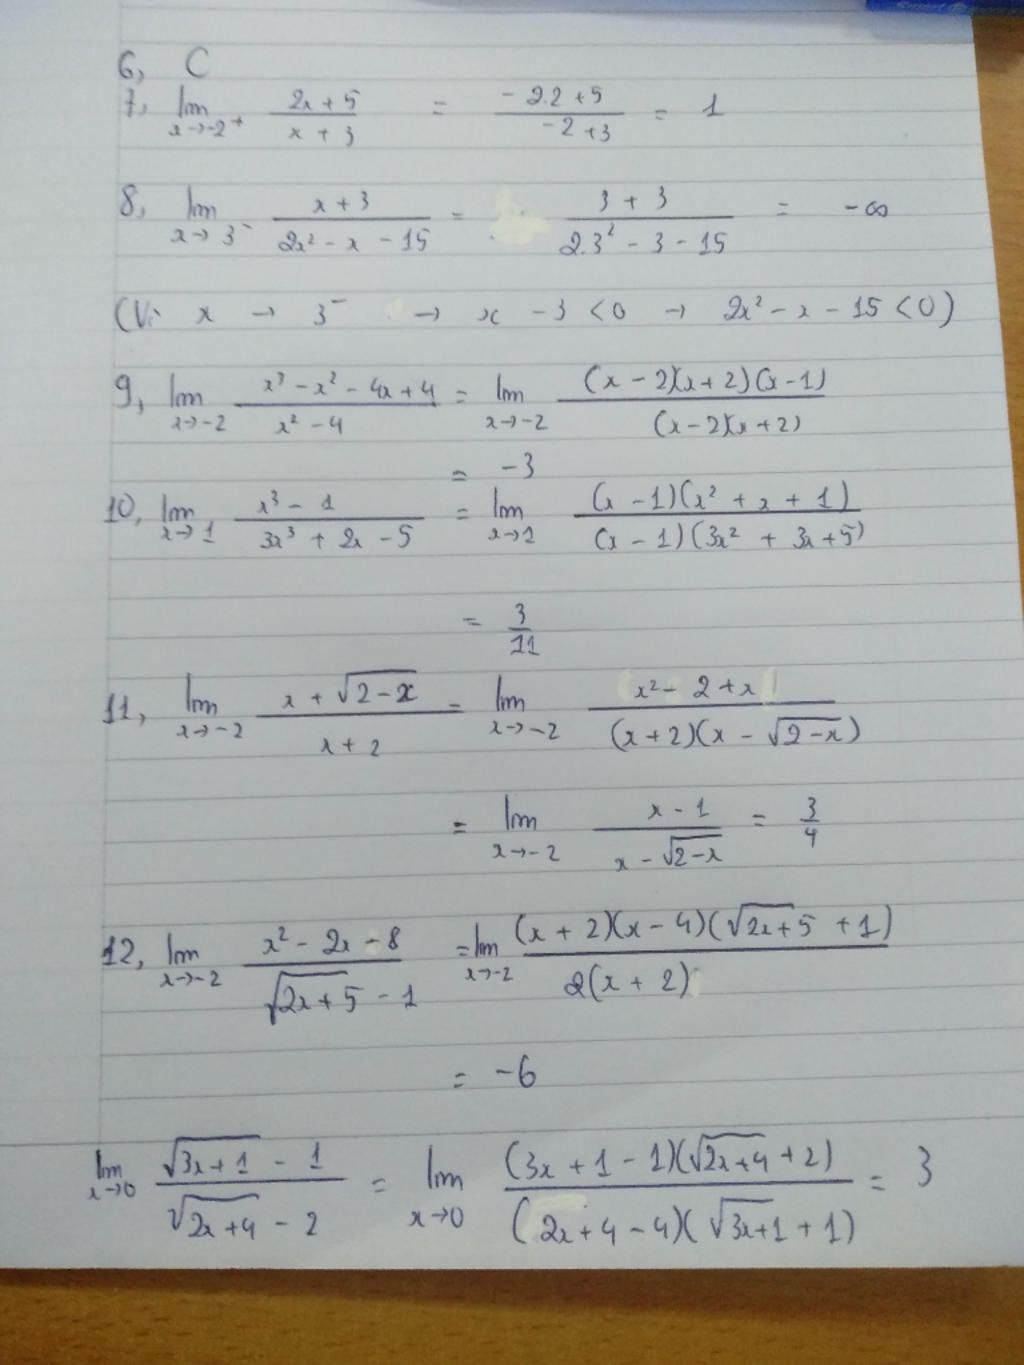 6, C
7, lim x→-2⁺ (2x + 5)/(x + 3) = (-2.2 + 5)/(-2 + 3) = 1
8, lim x→3⁻ (x + 3)/(2x² - x - 15) = (3 + 3)/(2.3² - 3 - 15) = -∞
(Vì x → 3⁻ → x - 3 < 0 → 2x² - x - 15 < 0)
9, lim x→-2 (x³ - x² - 4x + 4)/(x² - 4) = lim x→-2 ((x - 2)(x + 2)(x - 1))/((x - 2)(x + 2))
= -3
10, lim x→1 (x³ - 1)/(3x³ + 2x - 5) = lim x→1 ((x - 1)(x² + x + 1))/((x - 1)(3x² + 3x + 5))
= 3/11
11, lim x→-2 (x + √(2 - x))/(x + 2) = lim x→-2 (x² - 2 + x)/((x + 2)(x - √(2 - x)))
= lim x→-2 (x - 1)/(x - √(2 - x)) = 3/4
12, lim x→-2 (x² - 2x - 8)/(√(2x + 5) - 1) = lim x→-2 ((x + 2)(x - 4)(√(2x + 5) + 1))/(2(x + 2))
= -6
lim x→0 (√(3x + 1) - 1)/(√(2x + 4) - 2) = lim x→0 ((3x + 1 - 1)(√(2x + 4) + 2))/((2x + 4 - 4)(√(3x + 1) + 1)) = 3